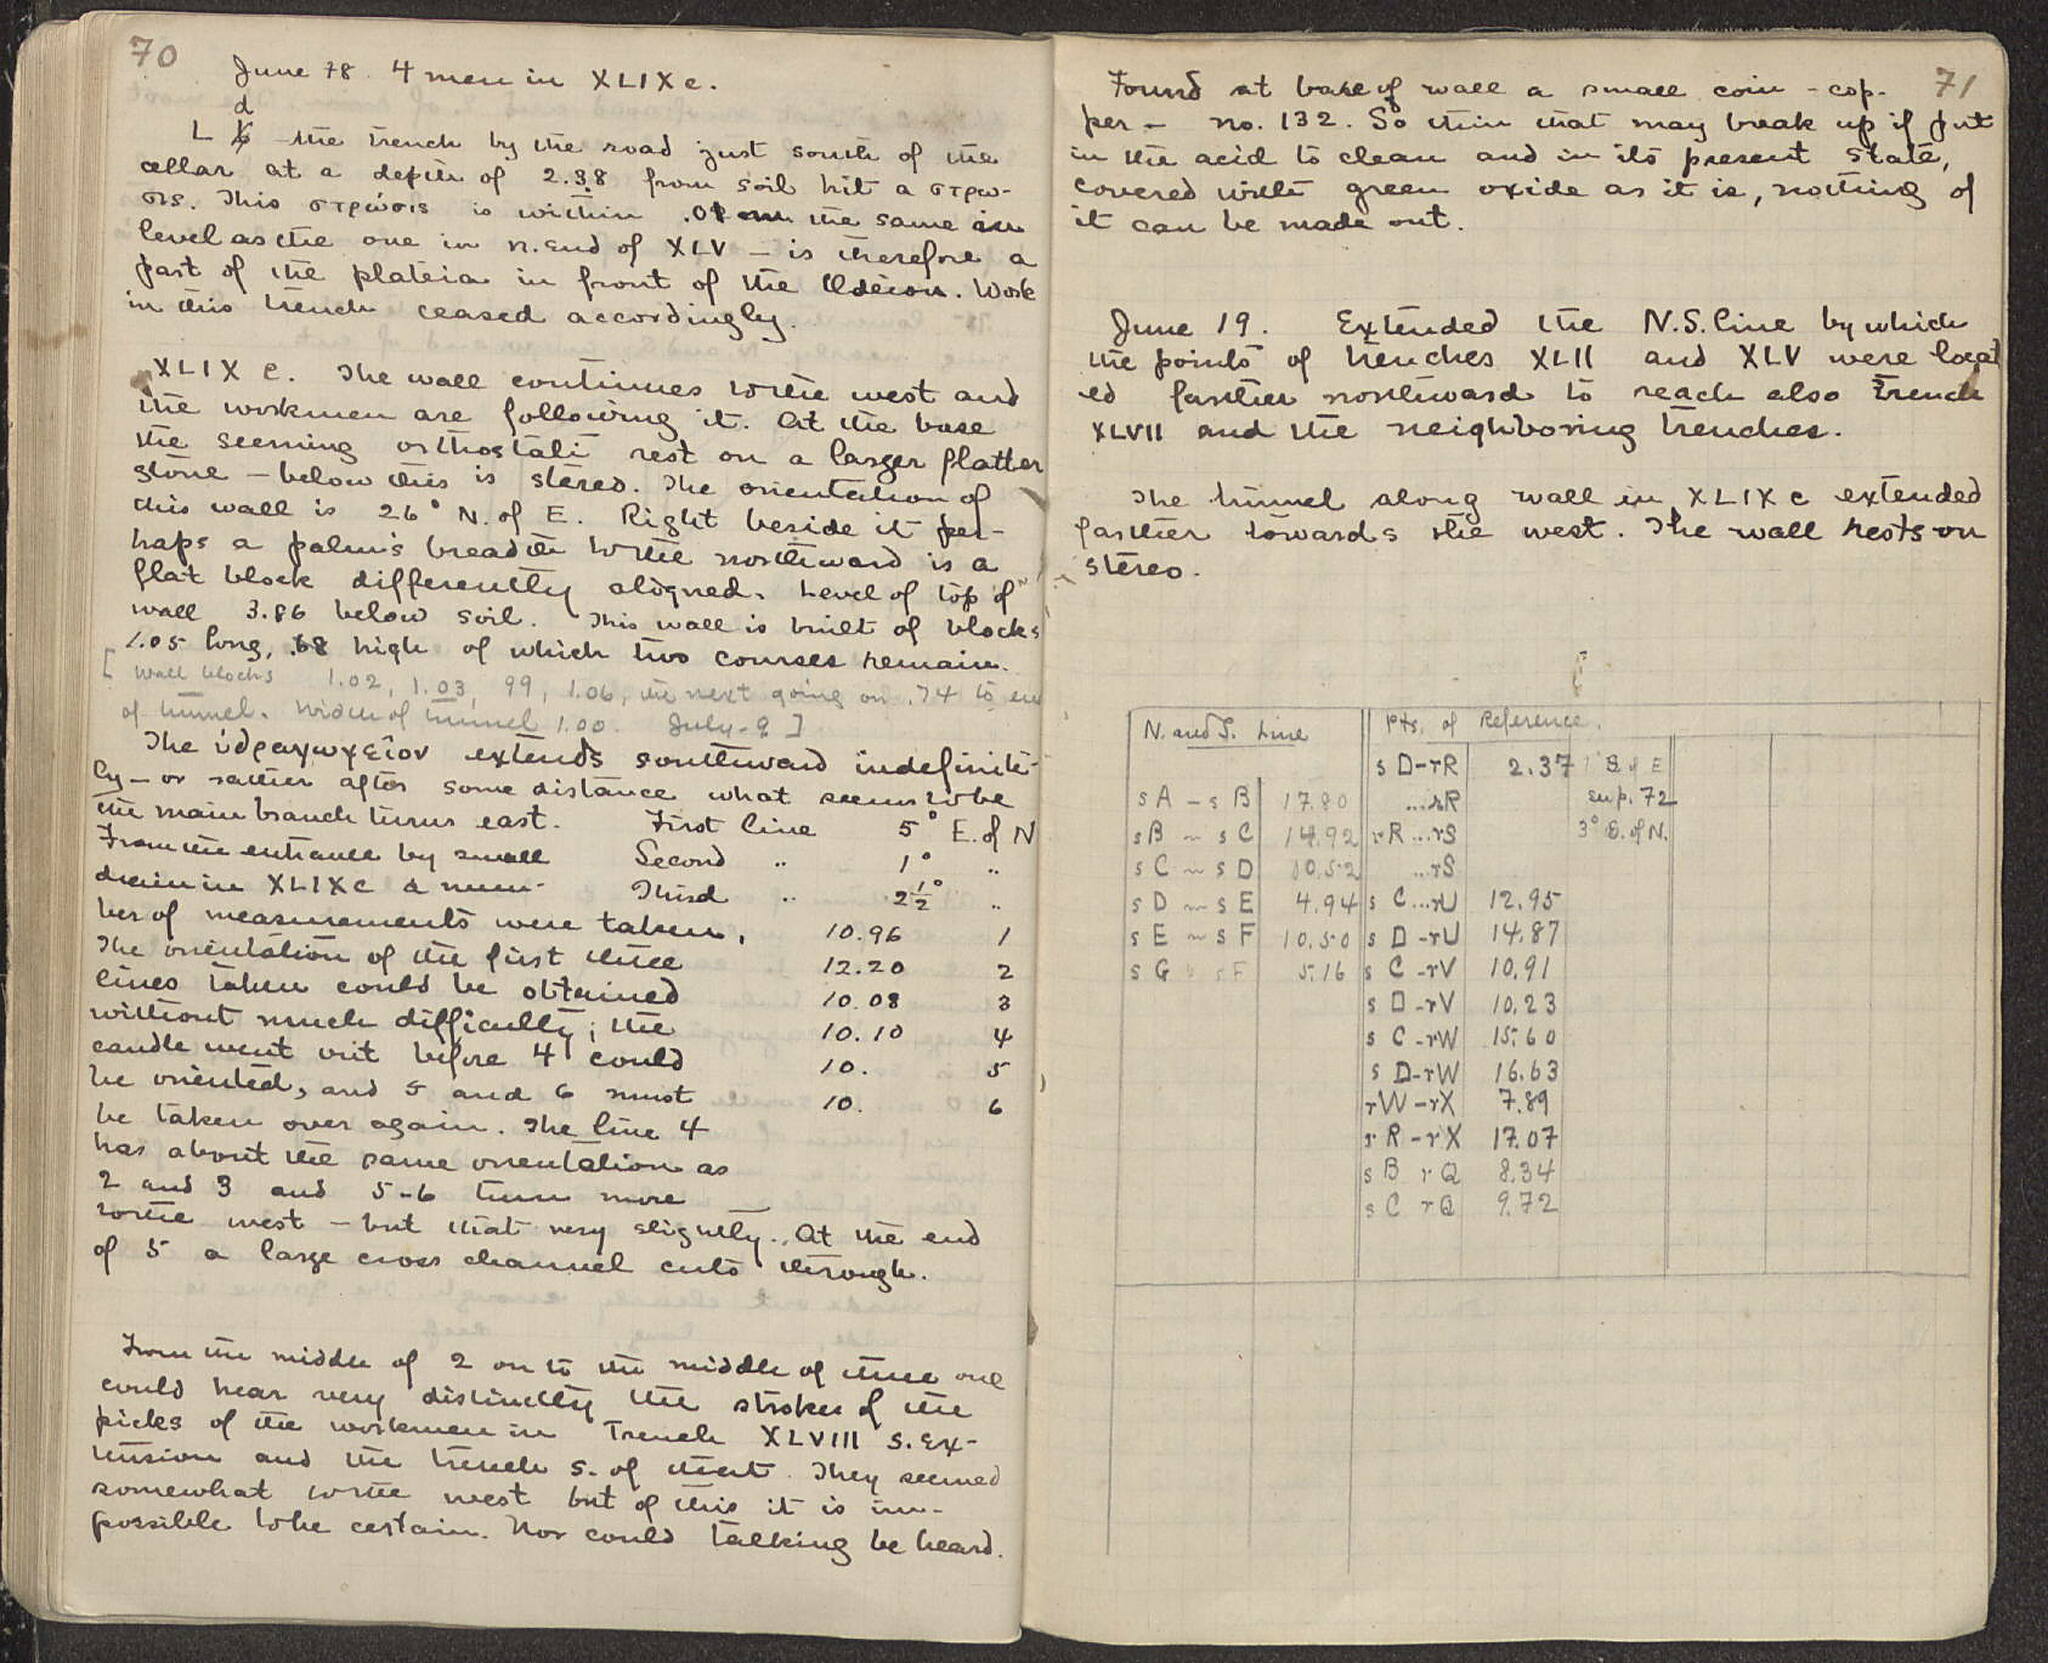 70
June 18. 4 men in XLIX c.
d
L the trench by the road just south of the
cellar at a depth of 2.38 from soil hit a στρω-
σις. This στρώσις is within the same
level as the one in n. end of XLV — is therefore a
part of the plateia in front of the Odeion. Work
in this trench ceased accordingly.
XLIX c. The wall continues to the west and
the workmen are following it. At the base
the seeming orthostati rest on a larger flatter
stone — below this is stereo. The orientation of
this wall is 26° N. of E. Right beside it per-
haps a palm's breadth to the northward is a
flat block differently aligned. Level of top of
wall 3.86 below soil. This wall is built of blocks
1.05 long, .68 high of which two courses remain.
[ Wall blocks 1.02, 1.03, 99, 1.06, the next going on .74 to end
of tunnel. Width of tunnel 1.00. July 9 ]
The ὑδραγωγεῖον extends southward indefinite-
ly — or rather after some distance what seems to be
the main branch turns east. First line 5° E. of N
From the entrance by small Second .. 1° ..
drain in XLIX c a num- Third .. 2½° ..
ber of measurements were taken. 10.96 1
The orientation of the first three 12.20 2
lines taken could be obtained 10.08 3
without much difficulty; the 10.10 4
candle went out before 4 could 10. 5
be oriented, and 5 and 6 must 10. 6
be taken over again. The line 4
has about the same orientation as
2 and 3 and 5-6 turn more
to the west — but that very slightly. At the end
of 5 a large cross channel cuts through.
From the middle of 2 on to the middle of three one
could hear very distinctly the strokes of the
picks of the workmen in Trench XLVIII S. Ex-
tension and the trench S. of that. They seemed
somewhat to the west but of this it is im-
possible to be certain. Nor could talking be heard.
71
Found at base of wall a small coin - cop-
per - no. 132. So thin that may break up if put
in the acid to clean and in its present state,
covered with green oxide as it is, nothing of
it can be made out.
June 19. Extended the N.S. line by which
the points of trenches XLII and XLV were locat
ed farther northward to reach also Trench
XLVII and the neighboring trenches.
The tunnel along wall in XLIX c extended
farther towards the west. The wall rests on
stereo.
N. and S. Line Pts. of Reference.
s D-rR 2.37 1° S of E
s A - s B 17.80 ...rR sup. 72
s B - s C 14.92 rR...rS 3° E. of N.
s C - s D 10.52 ...rS
s D - s E 4.94 s C...rU 12.95
s E - s F 10.50 s D -rU 14.87
s G s F 5.16 s C -rV 10.91
s D -rV 10.23
s C -rW 15.60
s D-rW 16.63
rW -rX 7.89
rR -rX 17.07
s B rQ 8.34
s C rQ 9.72